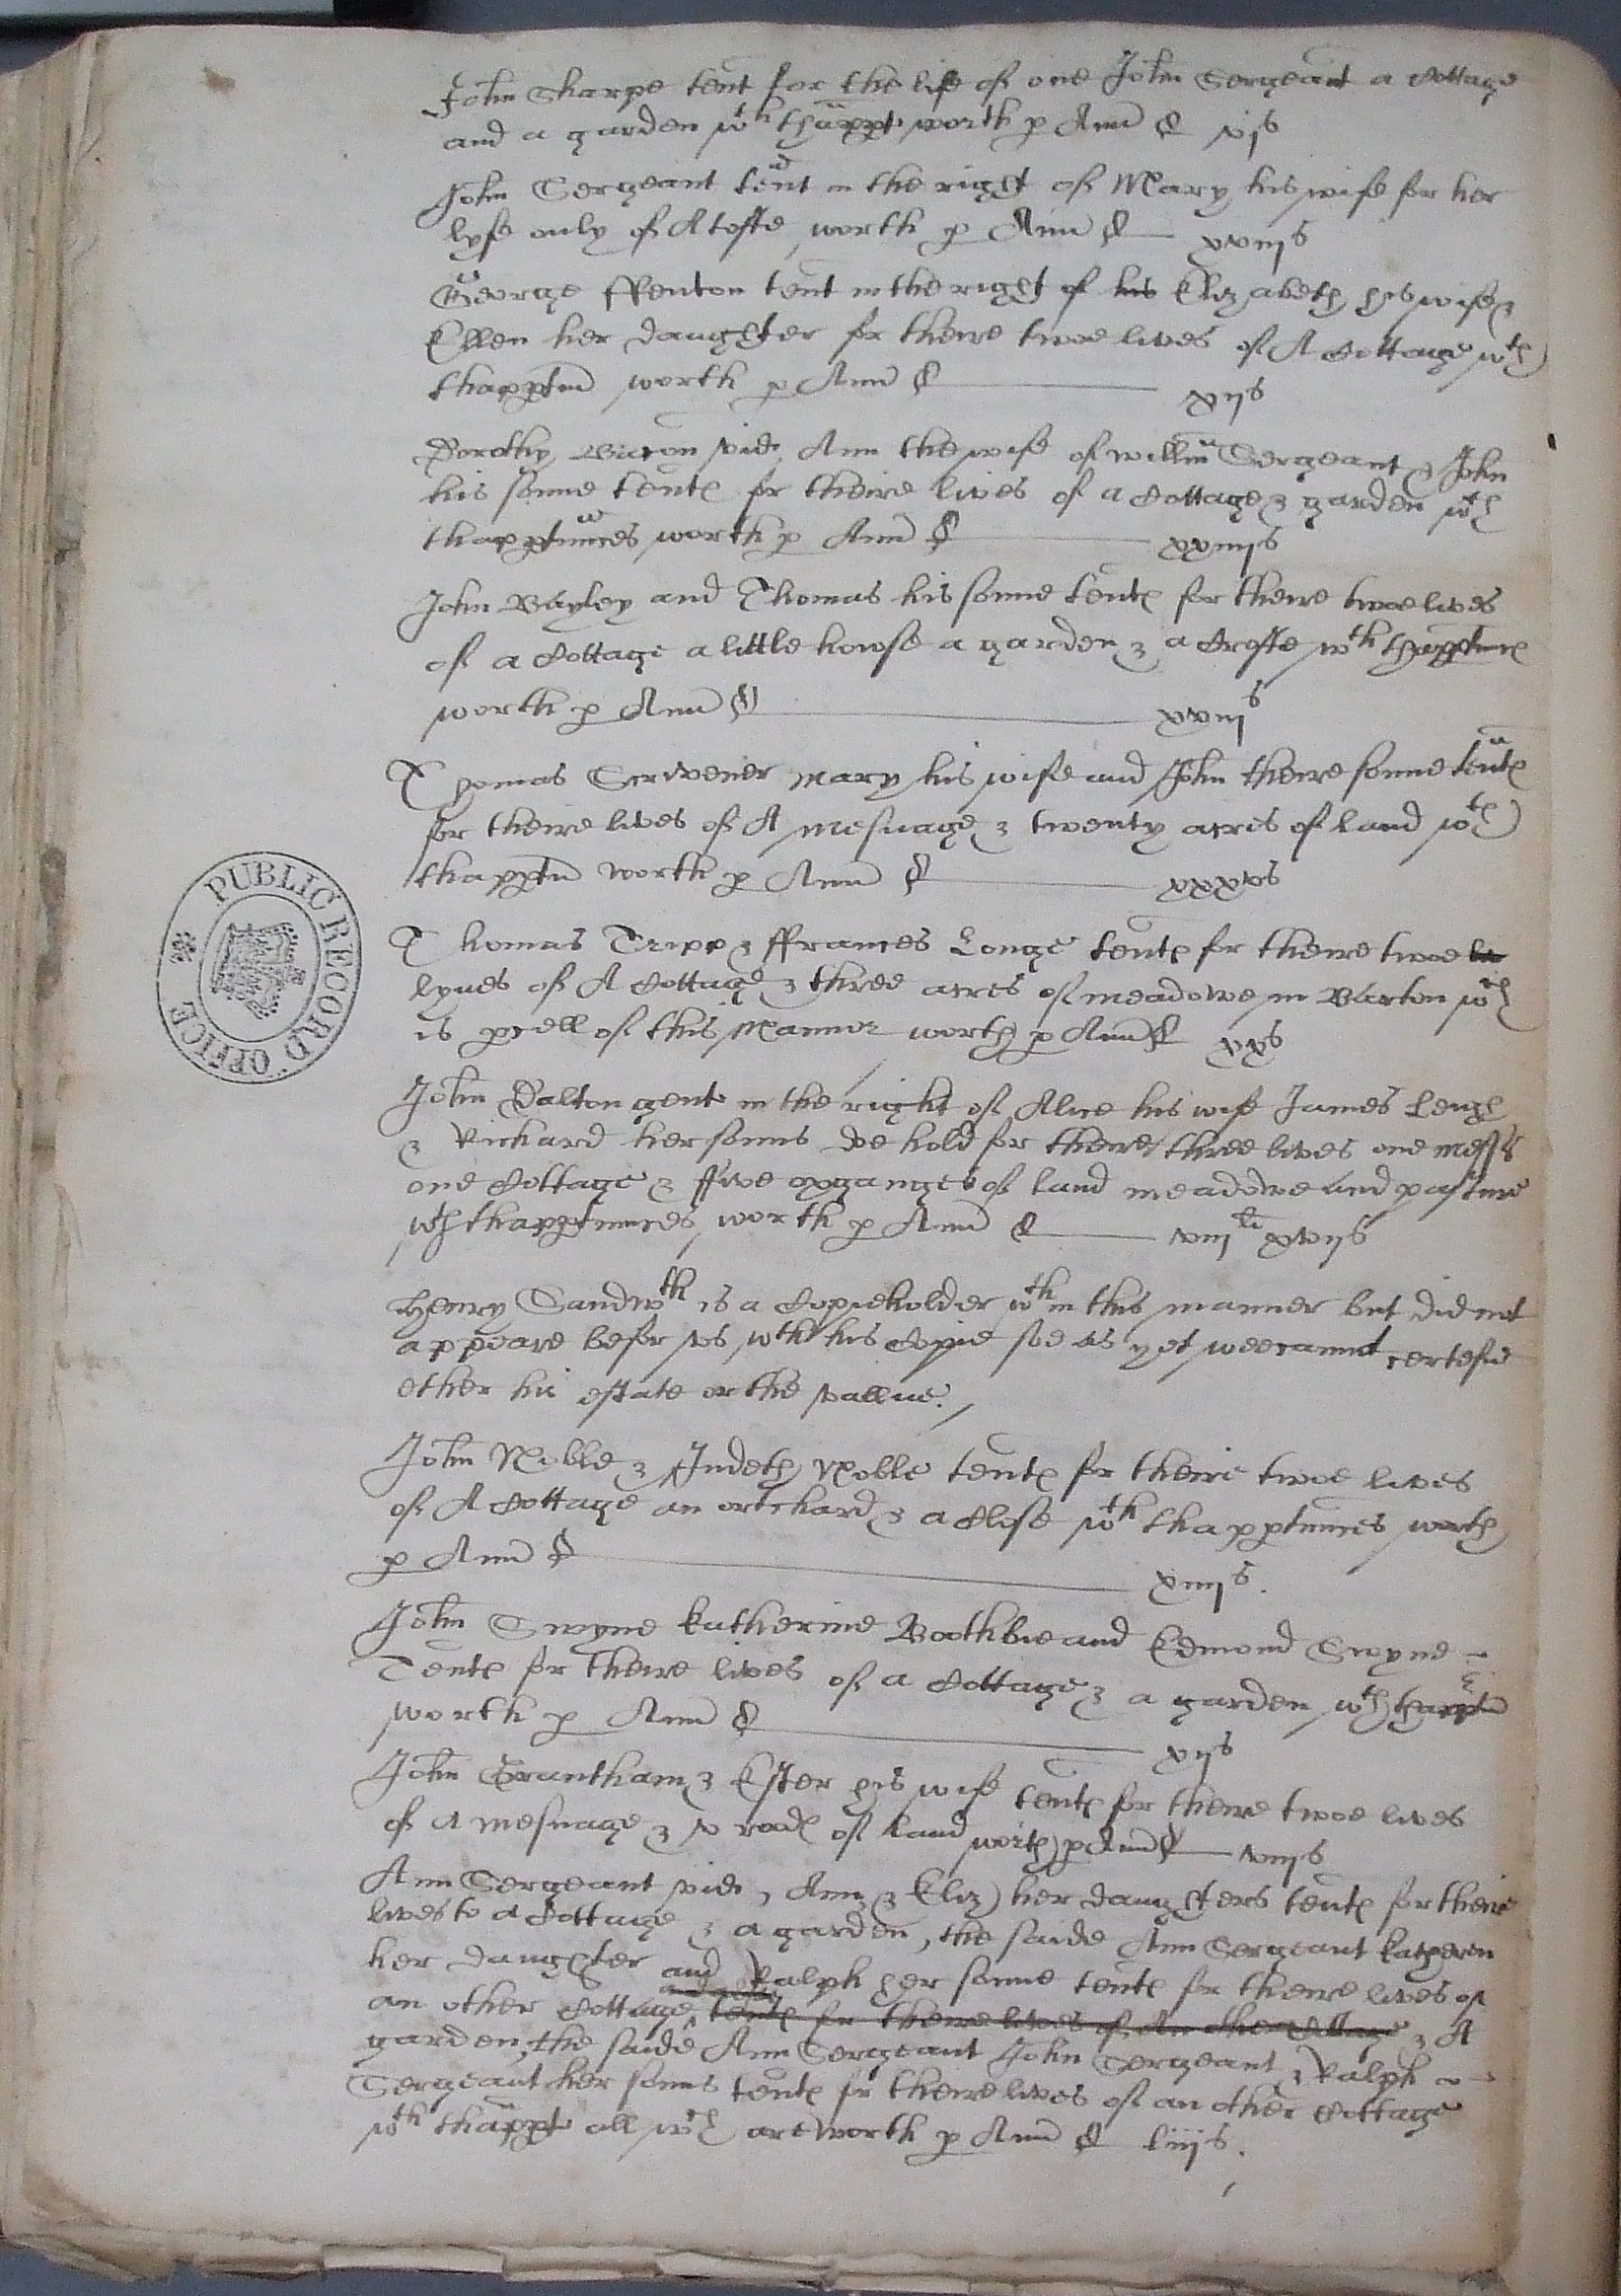 John Sharpe tent for the life of one John Sergeant a Cottage
and a garden wth thappt worth p Ann̄ xjs
John Sergeant tent in the right of Mary his wife for her
lyfe only of A tofte worth p Ann̄ xviijs
George ffenton tent in the right of his Elizabeth his wife &
Ellen her daughter for theire twoe lives of A Cottage wth
thapptn̄ worth p Ann̄ xijs
Dorothy vid, Ann the wife of Willm̄ Sergeant & John
his sonne tents for theire lives of a Cottage & garden wth
thapptnnces worth p Ann̄ xxiiijs
John Bayley and Thomas his sonne tents for theire twoe lives
of a Cottage a little howse a garden & a Crofte wth thapptnnces
worth p Ann̄ xviijs
Thomas Scrivener Mary his wife and John theire sonne tents
for theire lives of A Mesuage & twenty acres of land wth
thapptn̄ worth p Ann̄ xxxvs
Thomas Tripp & ffrances Longe tents for theire twoe li
lyves of A Cottage & three acres of meadowe in Barton wch
is pcell of this Mannor worth p Ann̄ xxs
John Dalton gent in the right of Alice his wife James Leigh
& Richard her sonns doe hold for theire three lives one mess
one Cottage & ffive oxganges of land meadowe and pasture
wth thapptnnces worth p Ann̄ viijli xvijs
Henry Sandwth is a Copieholder wthin this manner but did not
appeare befor us wth his Copie soe as yet wee cannot certefie
ether his estate or the vallue.
John Noble & Judeth Noble tents for theire twoe lives
of A Cottage an orrchard & a Close wth thapptnnces worth
p Ann̄ xiiijs.
John Swyne Katherine Boothbie and Edmond Swyne
Tents for theire lives of a Cottage & a garden wth thapptn̄
worth p Ann̄ xijs
John Grantham & Ester his wife tents for theire twoe lives
of A mesuage & v roods of land worth p Ann̄ viijs
Ann Sergeant vid, Ann & Eliz her daughters tents for theire
lives to a Cottage & a garden, the saide Ann Sergeant Katheren
her daughter and Ralph her sonne tents for theire lives of
an other Cottage tents for theire lives of An other Cottage & A
garden, the saide Ann Sergeant John Sergeant & Ralph
Sergeant her sonns tents for theire lives of an other Cottage
wth thappt all wch are worth p Ann̄ liijs.
PUBLIC RECORD OFFICE